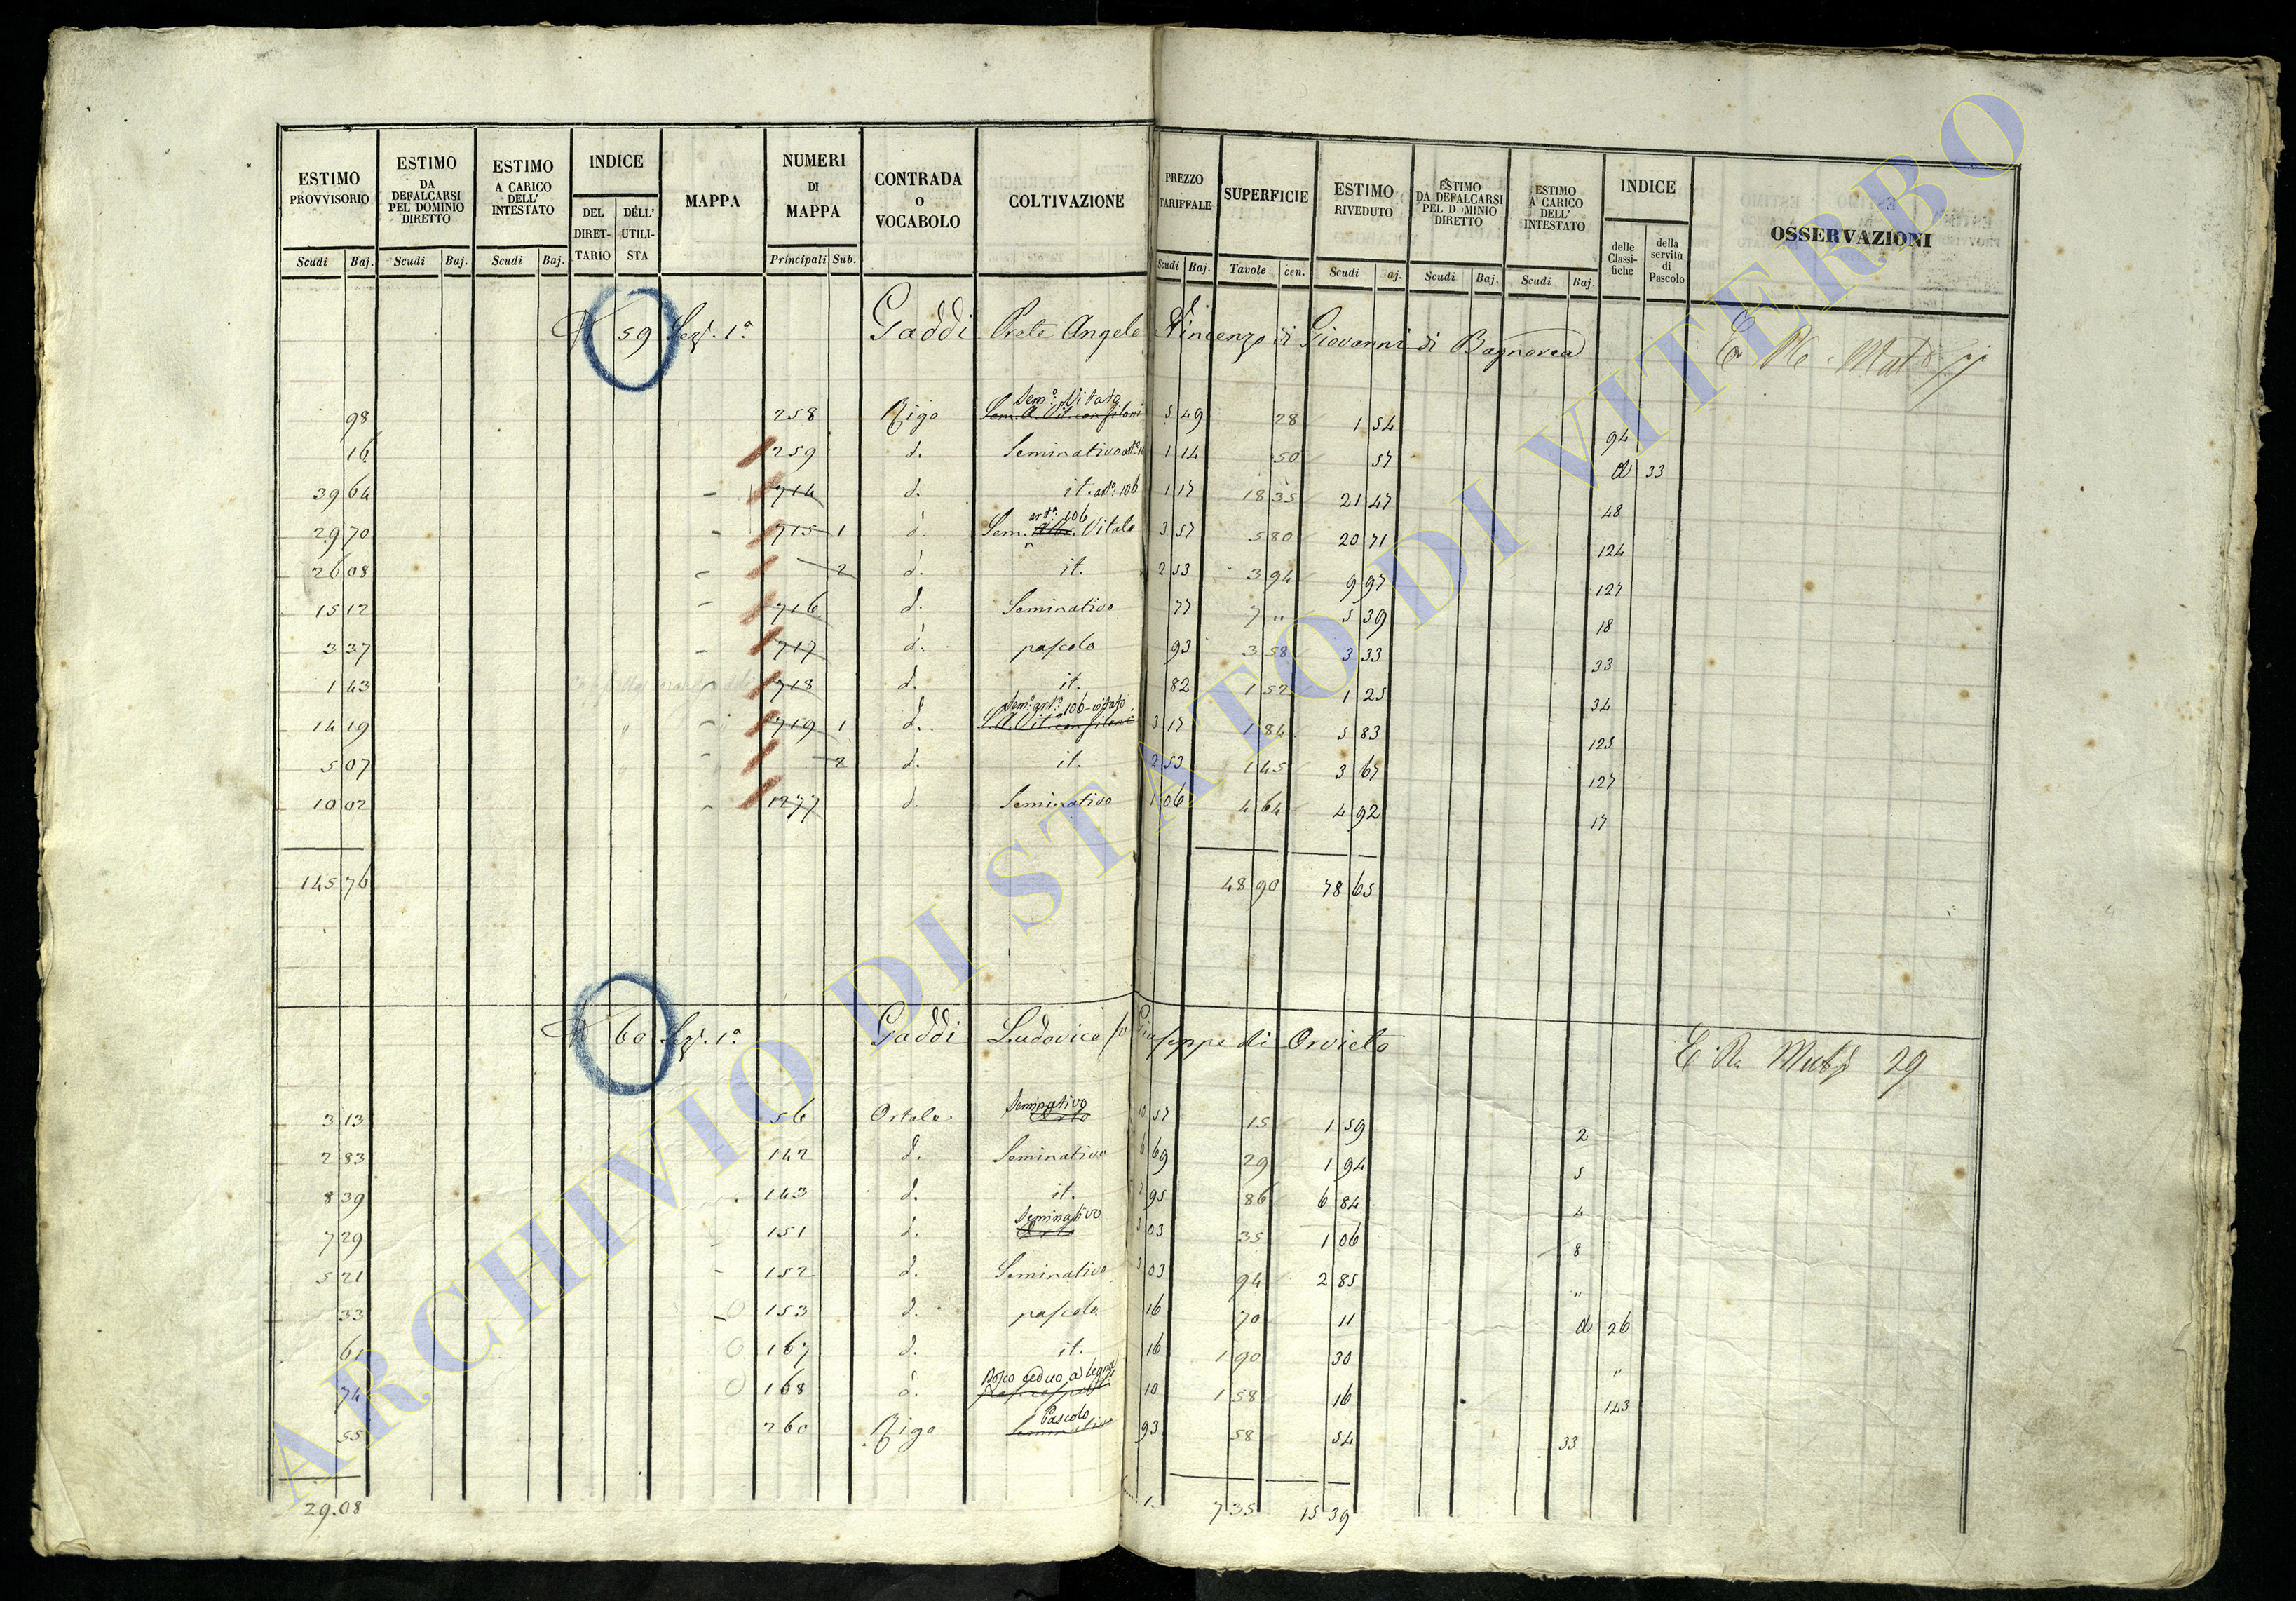 ESTIMO PROVVISORIO | ESTIMO DA DEFALCARSI PEL DOMINIO DIRETTO | ESTIMO A CARICO DELL' INTESTATO | INDICE | MAPPA | NUMERI DI MAPPA | CONTRADA O VOCABOLO | COLTIVAZIONE | PREZZO TARIFFALE | SUPERFICIE | ESTIMO RIVEDUTO | ESTIMO DA DEFALCARSI PEL DOMINIO DIRETTO | ESTIMO A CARICO DELL' INTESTATO | INDICE | OSSERVAZIONI
DEL DIRETTARIO | DELL' UTILISTA | delle Classifiche | della servitù di Pascolo
Scudi | Baj. | Scudi | Baj. | Scudi | Baj. | Principali | Sub. | Scudi | Baj. | Tavole | cen. | Scudi | aj. | Scudi | Baj. | Scudi | Baj.
59 Sez. 1a Gaddi Prete Angelo Vincenzo di Giovanni di Bagnorea
98 258 Rigo Sem.o Vitato 5 49 28 1 54 94
16 259 d. Seminativo 1 14 50 57 d 33
39 64 714 d. it. art.o 106 1 17 18 35 21 47 48
29 70 715 1 d. Sem. art.o 106 Vitato 3 57 5 80 20 71 124
26 08 2 d. it. 2 53 3 94 9 97 127
15 12 716 d. Seminativo 77 7 " 5 39 18
3 37 717 d. pascolo 93 3 58 3 33 33
1 43 718 d. it. 82 1 52 1 25 34
14 19 719 1 d. Sem.o art.o 106 vitato 3 17 1 84 5 83 125
5 07 2 d. it. 2 53 1 45 3 67 127
10 02 1277 d. Seminativo 1 06 4 64 4 92 17
145 76 48 90 78 65
60 Sez. 1a Gaddi Ludovico fu Giuseppe di Orvieto E. R. Mut. 29
3 13 56 Ortale Seminativo Orto 10 57 15 1 59 2
2 83 142 d. Seminativo 6 69 29 1 94 5
8 39 143 d. it. 7 95 86 6 84 4
7 29 151 d. Seminativo Orto 3 03 35 1 06 8
5 21 152 d. Seminativo 3 03 94 2 85 "
33 153 d. pascolo 16 70 11 d 26
61 167 d. it. 16 1 90 30 "
74 168 d. Bosco ceduo a legna 10 1 58 16 143
55 260 Rigo Pascolo Seminativo 93 58 54 33
29.08 7 35 15 39
ARCHIVIO DI STATO DI VITERBO